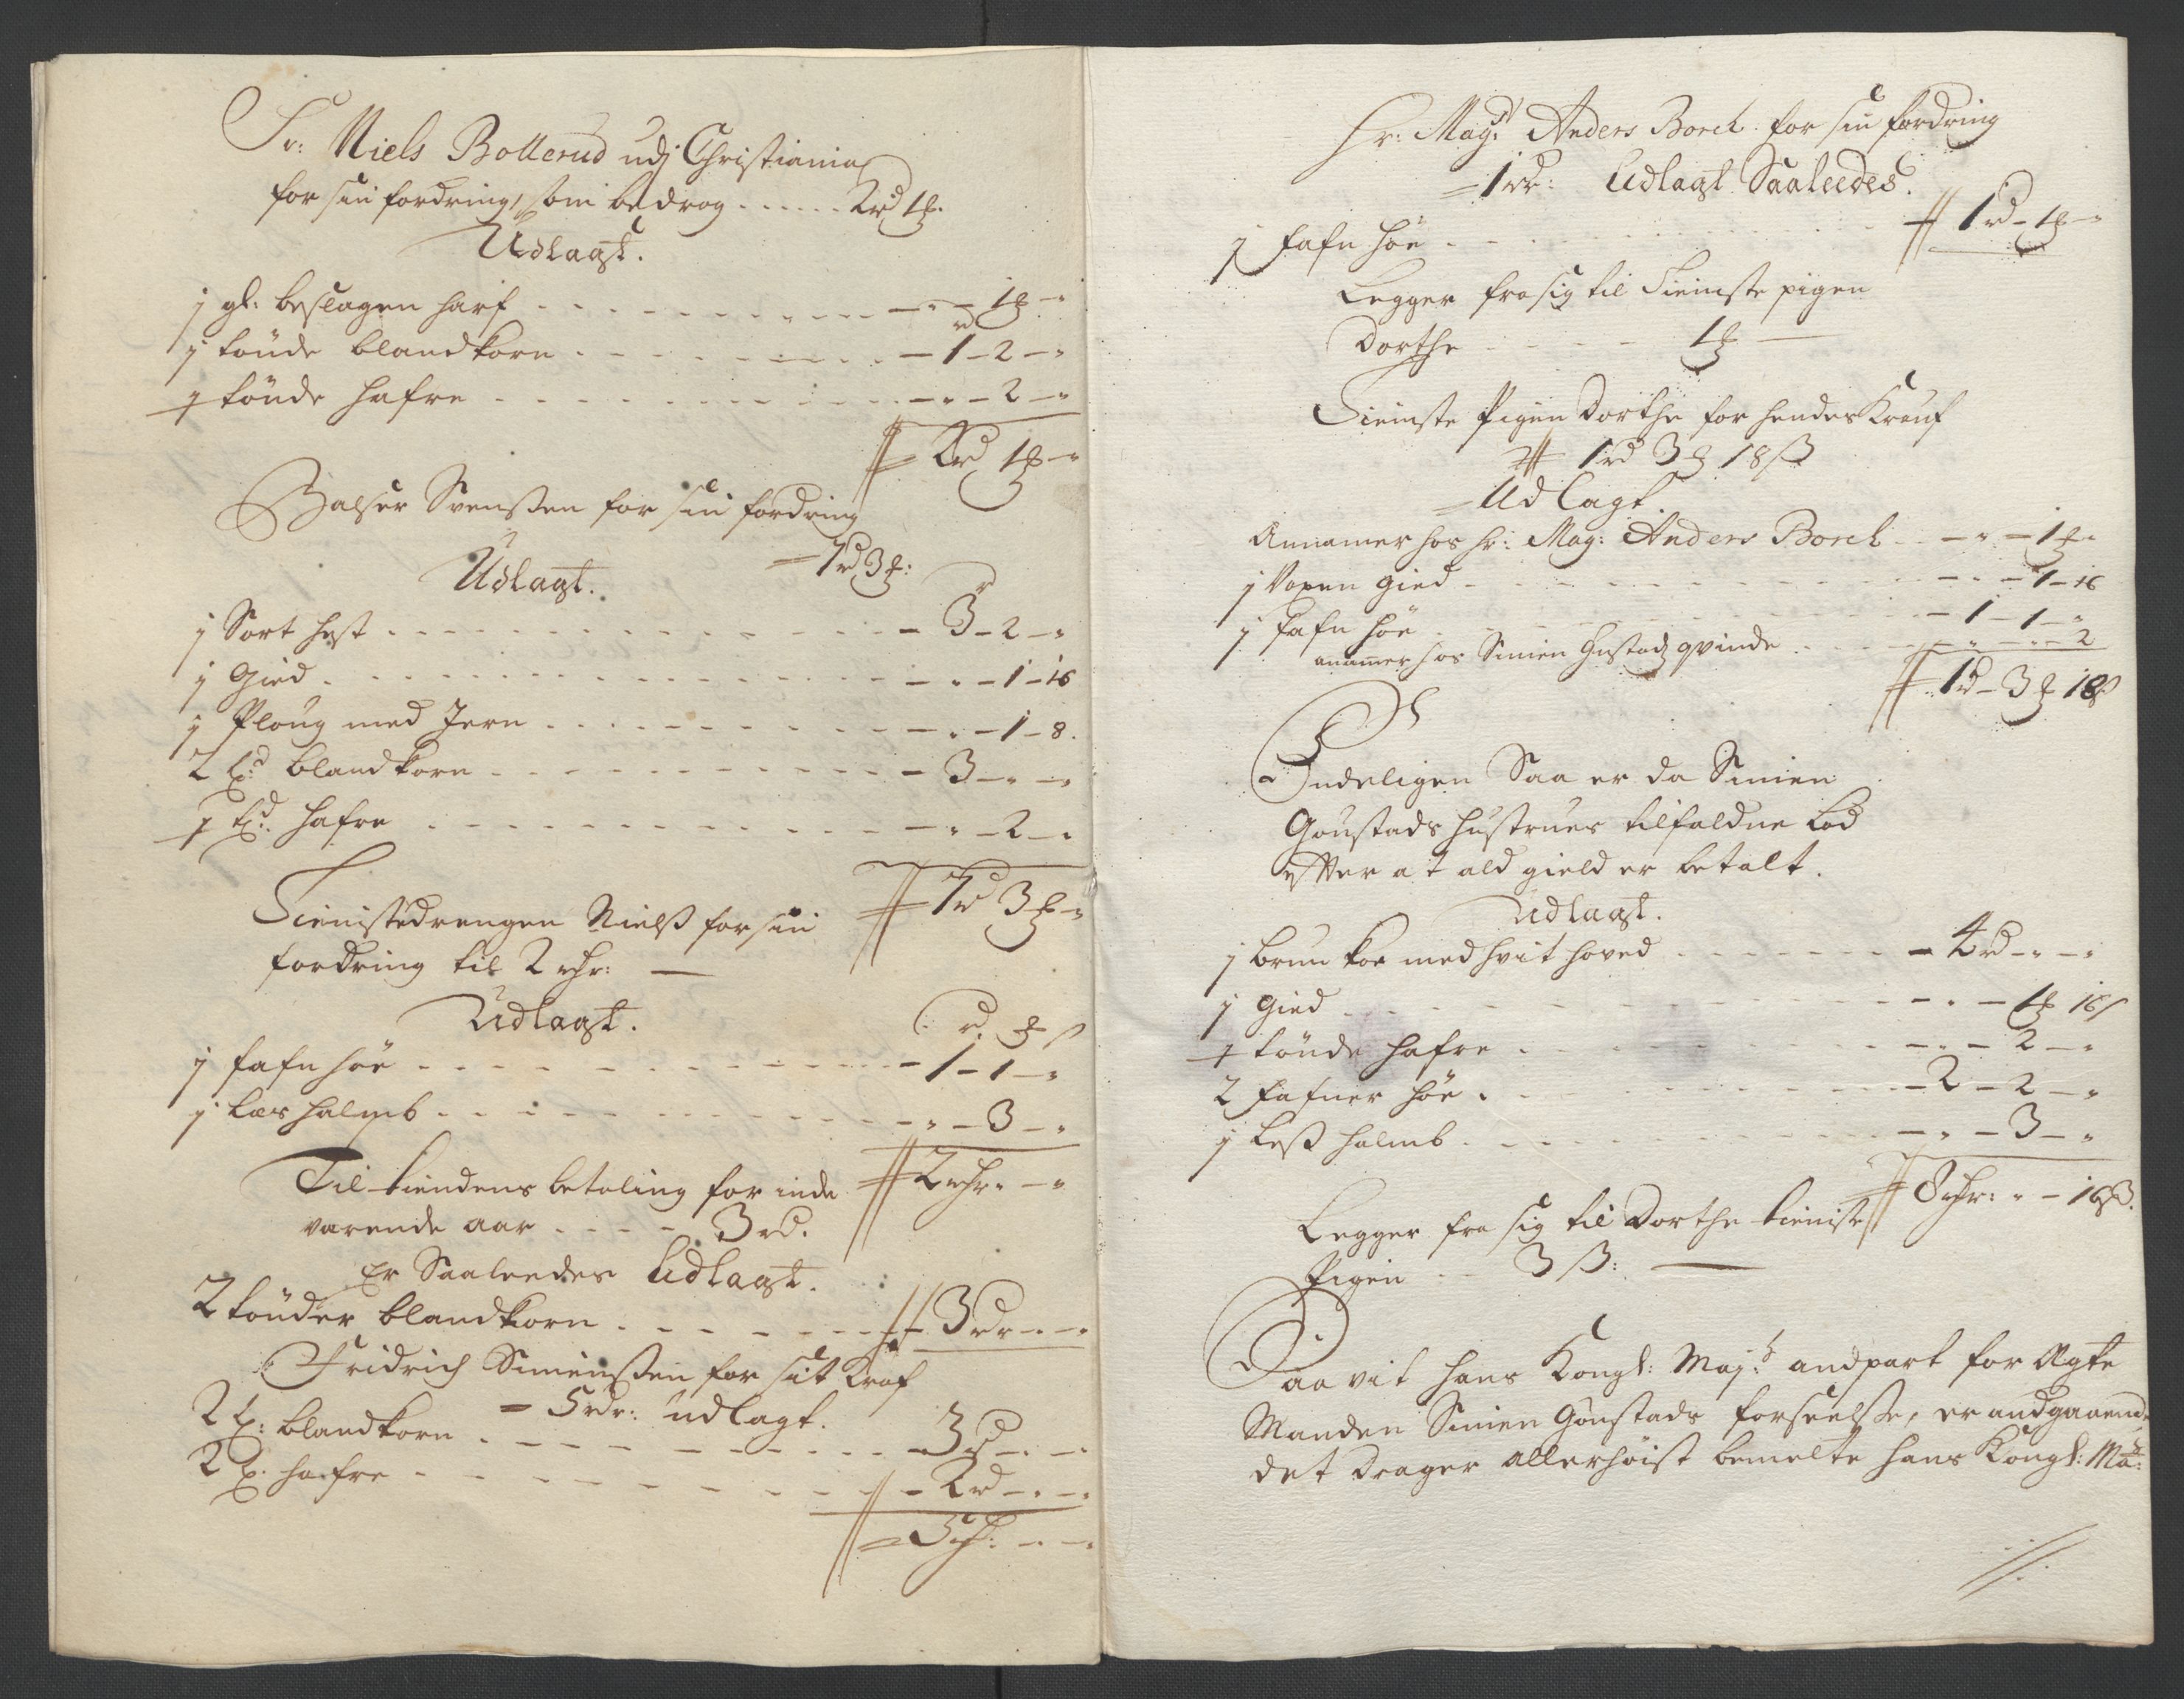 Sr: Niels Bollerud udj Christiania
for sin fordring, som bedrog ..... 2 rd 1 ort.
Udlagt.
1 gl: beslagen harf - - - 1 ort - "
1 tönde blandkorn - - - 1 - 2 - "
1 tönde hafre - - - " - 2 - "
2 rd 1 ort - "
Balser Svenßen for sin fordring
7 rd 3 ort:
Udlagt.
1 Sort hest - - - 3 - 2 - "
1 Gied - - - " - 1 - 16
1 Ploug med Jern - - - " - 1 - 8.
2 td blandkorn - - - 3 - " - "
1 td hafre - - - " - 2 - "
7 rd 3 ort - "
Tienistedrengen Nielß for sin
fordring til 2 rdr:
Udlagt.
1 fafn höe - - - 1 - 1 - "
1 læs halmb - - - " - 3 - "
2 rdr - " - "
Til tiendens betaling for inde
værende aar - - - 3 rd.
Er Saaledes Udlagt.
2 tönder blandkorn - - - 3 rdr - " - "
Fridrich Simenßen for sit Kraf
5 rdr: udlagt.
2 t: blandkorn - - - 3 rd - " - "
2 t. hafre - - - 2 rd - " - "
5 rdr: - " - "
Hr: Mag: Anders Borch for sin fordring
1 rd: Udlagt Saaledes.
1 fafn höe - - - 1 rd - 1 ort - "
Legger fra sig til Tieniste pigen
Dorthe - - - 1 ort
Tieniste Pigen Dorthe for hendes Krauf
1 rd 3 ort 18 ß
Udlagt.
Annamer hos hr: Mag: Anders Borch - " - 1 ort "
1 Voxen gied - - - " - 1 - 16
1 fafn höe - - - 1 - 1 - "
anammer hos Simen Gustads qvinde - - - " - " - 2
1 rd - 3 ort 18 ß
Endeligen Saa er da Simen
Goustads hustrues tilfaldne Lod
efter at ald gield er betalt.
Udlagt.
1 brun koe med hvit hoved - - - 4 rd - " - "
1 Gied - - - " - 1 ort 16 ß
1 tönde hafre - - - " - 2 - "
2 fafner höe - - - 2 - 2 - "
1 leß halmb - - - " - 3 - "
8 rdr: " - 16 ß.
Legger fra sig til Dorthe tieniste
Pigen - - 3 ß:
Saa vit hans Kongl: Maj:ts andpart for Ægte
Manden Simen Goustads forseelße, er andgaaende,
det Drager allerhöist bemelte hans Kongl: Ma: